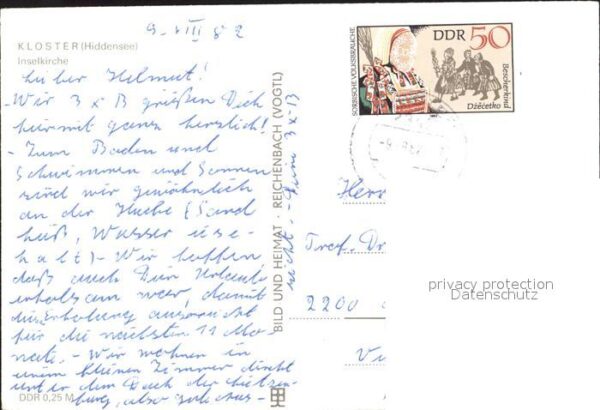 9. VIII 82
KLOSTER (Hiddensee)
Inselkirche
Lieber Helmut!
- Wir 3 x B grüßen Dich
hiermit ganz herzlich!
- Zum Baden und
Schwimmen und Sonnen
sind wir gewöhnlich
an der Hucke (Sand
heiß, Wasser
kalt) - Wir hoffen,
daß auch Dein Urlaub
erholsam war, damit
die Erholung ausreicht
für die nächsten 11 Mo-
nate. - Wir wohnen in
einem kleinen Zimmer direkt
unter dem Dach der Lietzen-
burg, also
DDR 0,25 M
BILD UND HEIMAT · REICHENBACH (VOGTL)
nicht. - 3 x B
SORBISCHE VOLKSBRÄUCHE
DDR 50
Bescherkind
Dźěćetko
Herr
Prof. Dr
2200
privacy protection
Datenschutz